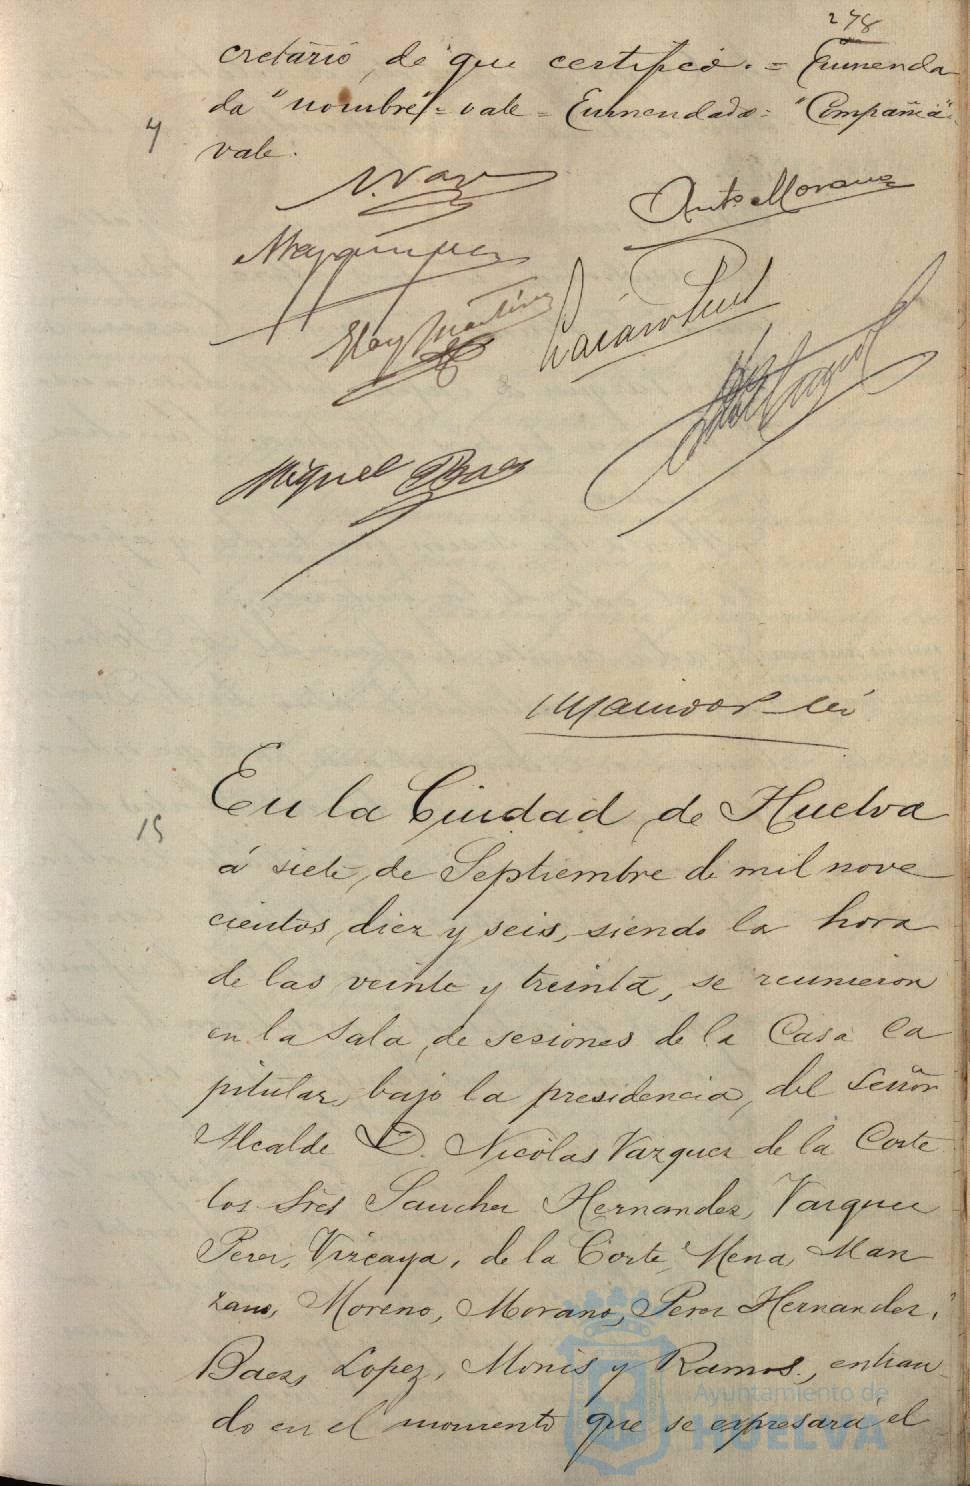 278
cretario, de que certifico. = Enmenda
da "nombre" = vale = Enmendado = "Compañia"
vale.
4
N. Vazq
Antº Morano
Eloy Martín
Miguel Baez
15
En la Ciudad de Huelva
á siete de Septiembre de mil nove
cientos diez y seis, siendo la hora
de las veinte y treinta, se reunieron
en la Sala de sesiones de la Casa Ca
pitular, bajo la presidencia, del Señor
Alcalde D. Nicolas Vazquez de la Corte
los Sres Sanchez Hernandez, Vazquez
Perez, Vizcaya, de la Corte, Mena, Man
zano, Moreno, Morano, Perez Hernandez,
Baez, Lopez, Monis y Ramos, entran-
do en el momento que se expresará el
Ayuntamiento de
HUELVA